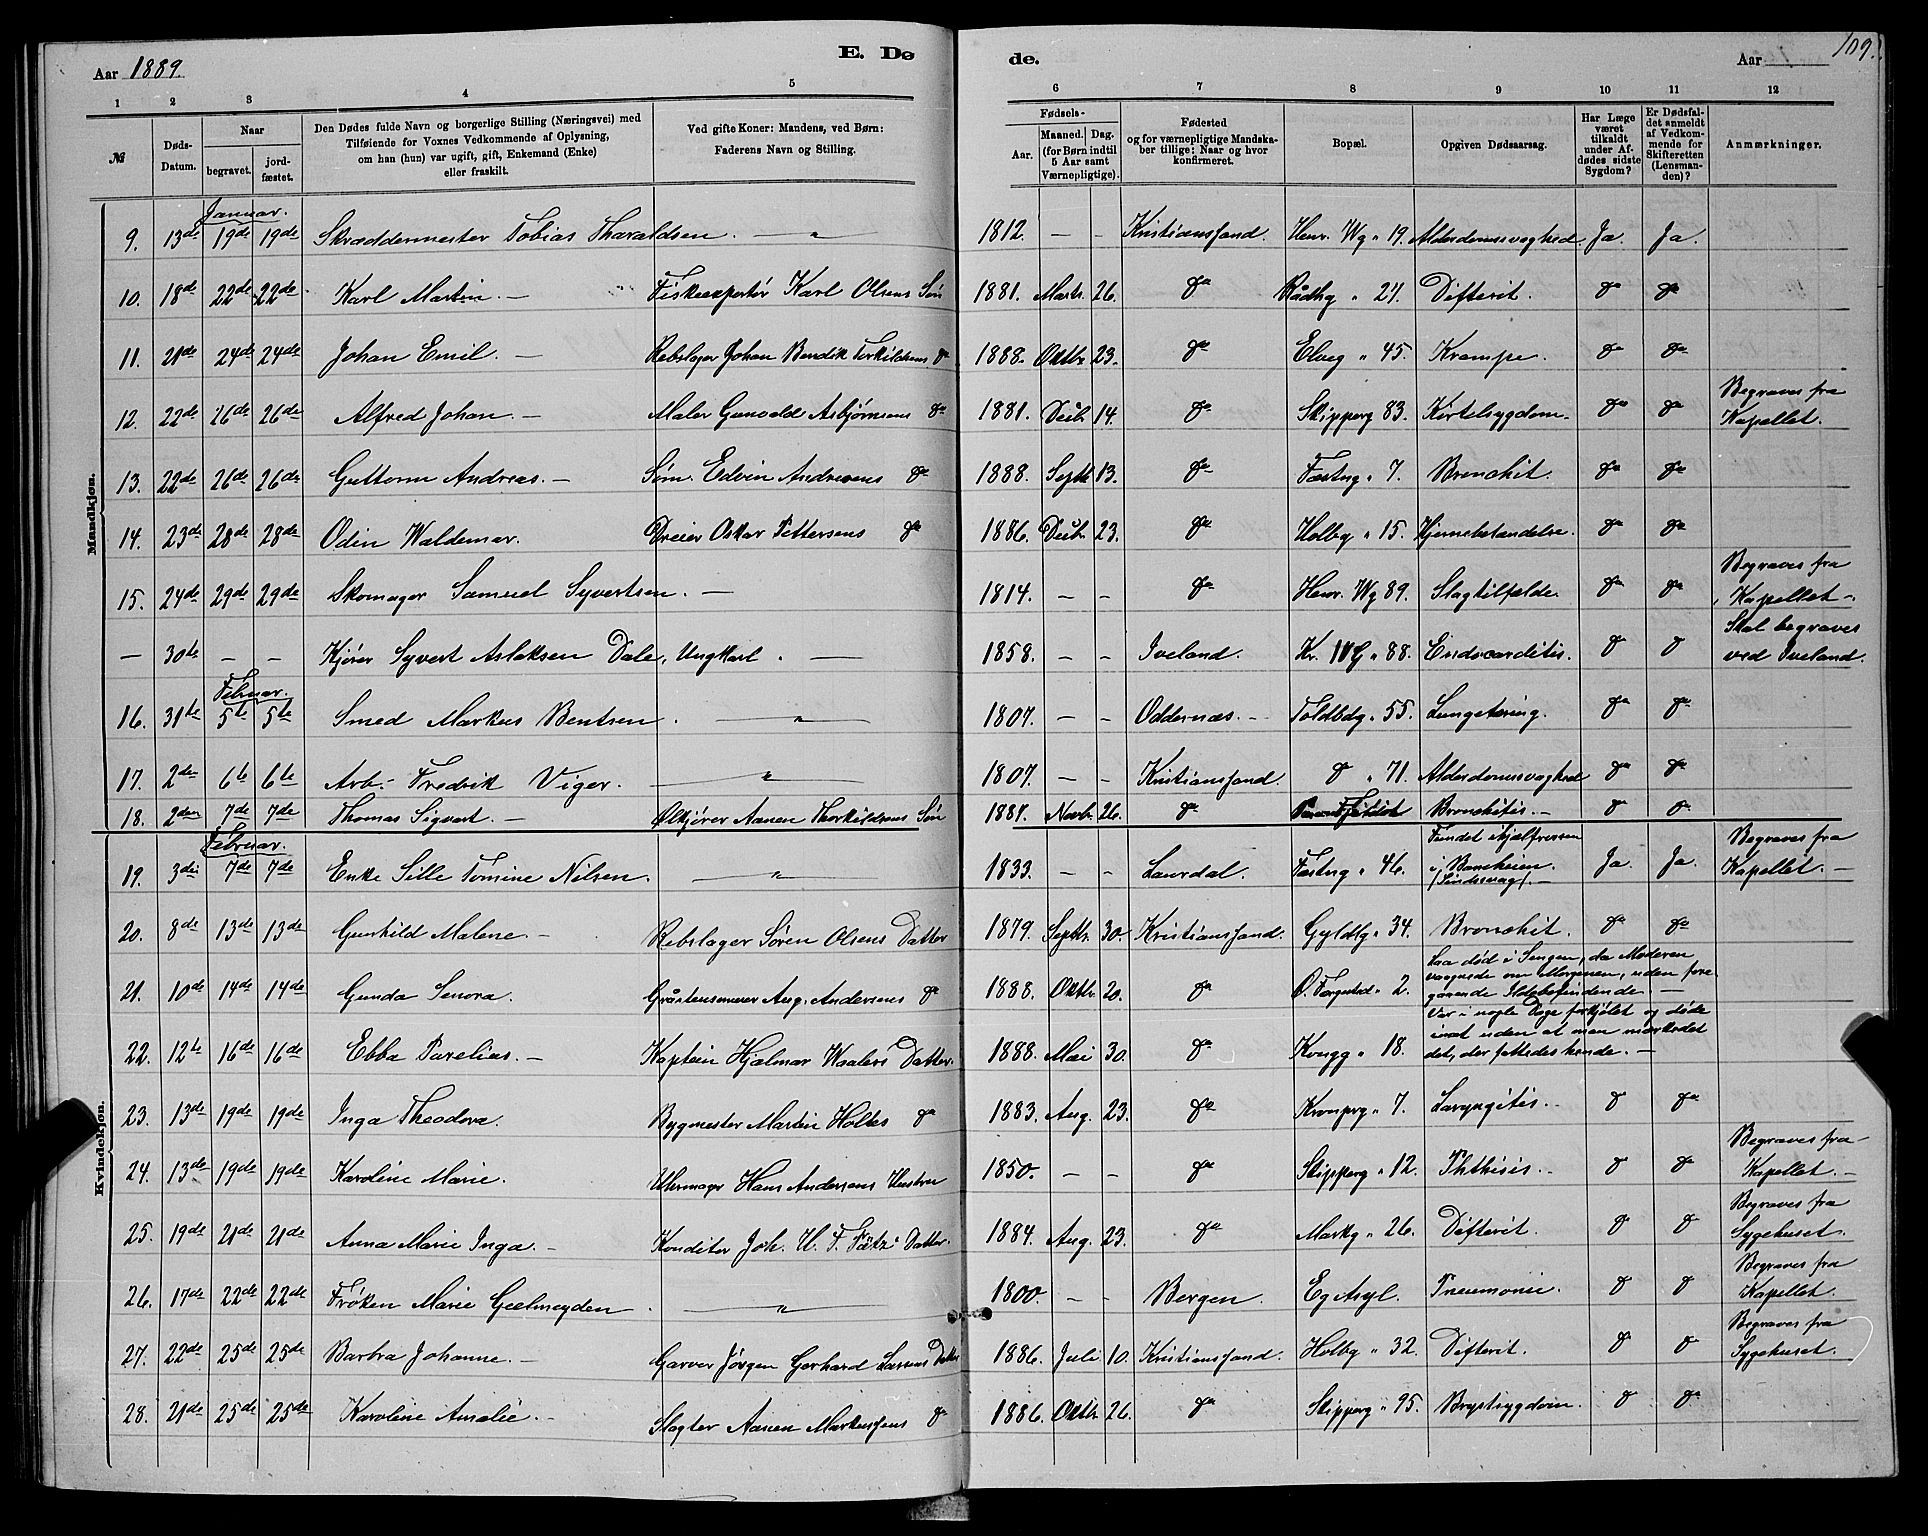 Aar 1889.
E. Dø
de.
Aar
109.
1 2 3 4 5 6 7 8 9 10 11 12
№
Døds-Datum.
Naar
begravet.
jordfæstet.
Den Dødes fulde Navn og borgerlige Stilling (Næringsvei) med
Tilføiende for Voxnes Vedkommende af Oplysning,
om han (hun) var ugift, gift, Enkemand (Enke)
eller fraskilt.
Ved gifte Koner: Mandens, ved Børn:
Faderens Navn og Stilling.
Fødsels-
Aar.
Maaned. Dag.
(for Børn indtil
5 Aar samt
Værnepligtige).
Fødested
og for værnepligtige Mandska-
ber tillige: Naar og hvor
konfirmeret.
Bopæl.
Opgiven Dødsaarsag.
Har Læge
været
tilkaldt
under Af-
dødes sidste
Sygdom?
Er Dødsfal-
det anmeldt
af Vedkom-
mende for
Skifteretten
(Lensman-
den)?
Anmærkninger.
Mandkjøn.
Januar.
9. 13de 19de 19de Skræddermester Tobias Tharaldsen. — " 1812. — — Kristianssand. Henr. Wg " 19. Alderdomssvaghed Ja. Ja.
10. 18de 22de 22de Karl Martin. — Fiskeexportør Karl Olsens Søn 1881. Marts. 26. do Rådhg " 27. Difterit. do do
11. 21de 24de 24de Johan Emil. — Rebslager Johan Bendik Torkildsens do 1888. Oktbr. 23. do Elveg " 45. Krampe. do do
12. 22de 26de 26de Alfred Johan. — Maler Gunvald Asbjørnsens do 1881. Decb. 14. do Skipperg 83. Kirtelsygdom. do do Begraves fra
Kapellet.
13. 22de 26de 26de Guttorm Andreas. — Søm. Edvin Andresens do 1888. Septb. 13. do Fæstng " 7. Bronchit. do do
14. 23de 28de 28de Odin Waldemar. Dreier Oskar Pettersens do 1886. Decb. 23. do Holbg " 15. Hjernebetændelse. do do
15. 24de 29de 29de Skomager Samuel Syvertsen. — 1814. — — do Henr. Wg 89. Slagtilfælde. do do Begraves fra
Kapellet —
— 30te — — Kjører Syvert Aslaksen Dale, Ungkarl. — 1858. — — Iveland. Kr. IV G " 88. Endocarditis. do do Skal begraves
ved Iveland.
Februar.
16. 31te 5te 5te Smed Markus Bentsen. — " — 1807. — — Oddernæs. — Toldbdg " 55. Lungetæring. do do
17. 2den 6te 6te Arb. Fredrik Viger. — " — 1807. — — Kristianssand. do " 71. Alderdomssvaghed do do
18. 2den 7de 7de Thomas Sigvart. — Ølkjører Aanen Thorkildsens Søn 1887. Novbr. 26. do Bronchitis. — do do
Kvindekjøn.
Februar.
19. 3die 7de 7de Enke Sille Tomine Nilsen. — " — 1833. — — Laurdal. Fæstng " 46. Fundet ihjelfrossen
i Baneheien
(Sindssvag). — Ja. Ja. Begraves fra
Kapellet. —
20. 8de 13de 13de Gunhild Malene. — Rebslager Søren Olsens Datter 1879. Septbr. 30. Kristianssand. Gyldlg " 34. Bronchit. do do
21. 10de 14de 14de Gunda Senora. Gråstensmurer Aug. Andersens do 1888. Oktbr. 20. do Ø. " 2. Laa død i Sengen, da Moderen
vaagnede om Morgenen, uden fore-
gaaende Ildebefindende —
22. 12te 16de 16de Ebba Parelius. — Kaptein Hjalmar Waalers Datter. 1888. Mai 30. do Kongg " 18. Var i nogle Dage forkjølet og døde
inat uden at man mærkedet
det, der fattedes hende. —
23. 13de 19de 19de Inga Theodora. Bygmester Martin Holtes do 1883. Aug. 23. do Kronprg " 7. Laryngitis. — do do
24. 13de 19de 19de Karoline Marie. Uhrmager Hans Andersens Hustru 1850. — — do Skipperg " 12. Phthisis. — do do Begraves fra
Kapellet. —
25. 19de 21de 21de Anna Marie Inga. — Konditor Joh. H. F. Fätz' Datter. 1884. Aug. 23. do Markg " 26. Difterit. do do Begraves fra
Sygehuset.
26. 17de 22de 22de Frøken Marie Geelmeyden. — " — 1800. — — Bergen. Eg Asyl. Pneumonie. do do Begraves fra
Kapellet.
27. 22de 25de 25de Barbra Johanne. — Garver Jørgen Gerhard Larsens Datter 1886. Juli 10. Kristianssand. Holbg " 32. Difterit. do do Begraves fra
Sygehuset.
28. 21de 25de 25de Karoline Amalie. — Slagter Aanen Markussens do 1886. Oktbr. 26. do Skipperg " 95. Brystsygdom. do do